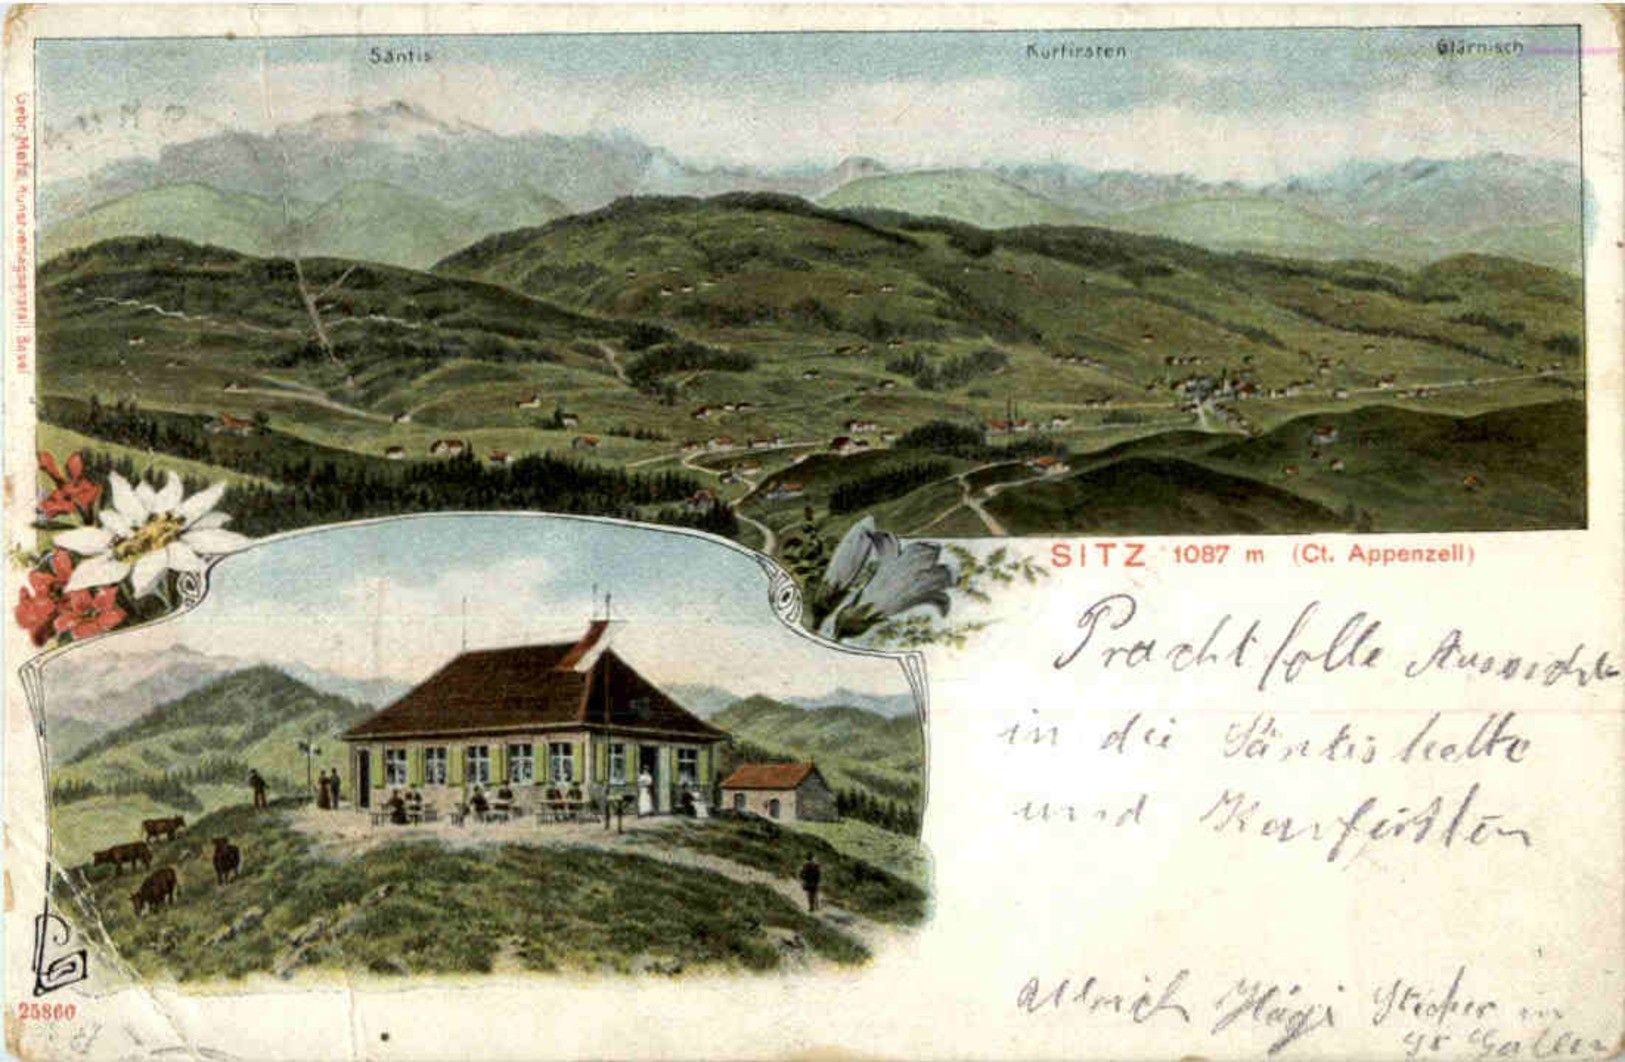 Säntis Kurfirsten Glärnisch
Gebr. Metz, Kunstverlagsanstalt, Basel
SITZ 1087 m (Ct. Appenzell)
Prachtfolle Aussicht
in die Säntiskette
und Kurfüsten
25860
Ullrich Hägi Sticker in
St Gallen